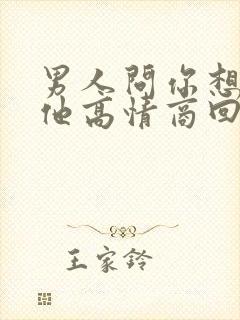 男人問你想
他高情商回
王家鈴